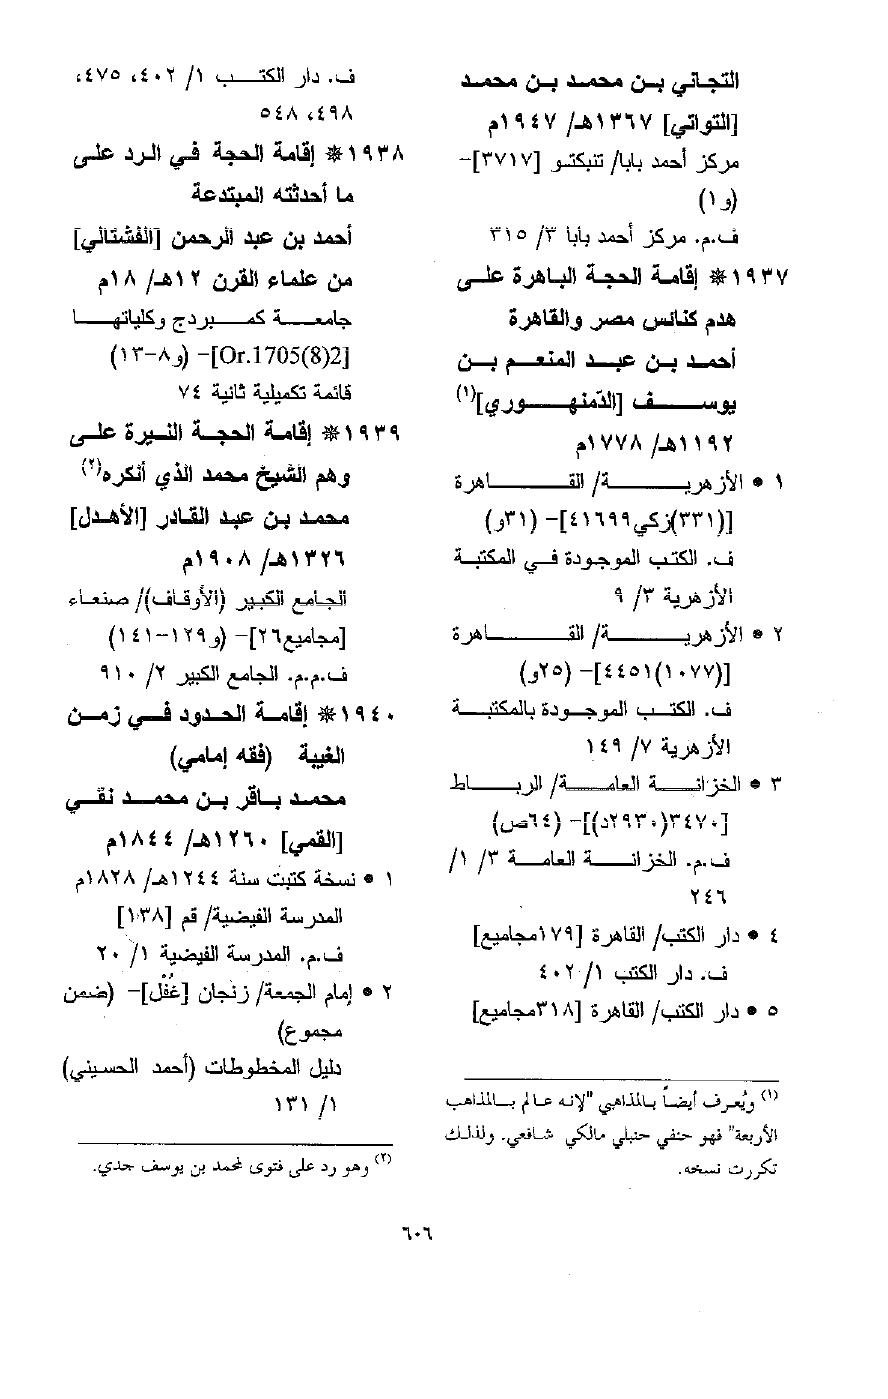 التجاني بن محمد بن محمد
[التواتي] ١٣٦٧هـ/ ١٩٤٧م
مركز أحمد بابا/ تنبكتو [٣٧١٧]-
(و١)
ف.م. مركز أحمد بابا ٣/ ٣١٥
١٩٣٧ * إقامة الحجة الباهرة على
هدم كنائس مصر والقاهرة
أحمد بن عبد المنعم بن
يوسف [الدّمنهوري](١)
١١٩٢هـ/ ١٧٧٨م
١ • الأزهرية/ القاهرة
[(٣٣١)زكي٤١٦٩٩]- (٣١و)
ف. الكتب الموجودة في المكتبة
الأزهرية ٣/ ٩
٢ • الأزهرية/ القاهرة
[(١٠٧٧)٤٤٥١]- (٢٥و)
ف. الكتب الموجودة بالمكتبة
الأزهرية ٧/ ١٤٩
٣ • الخزانة العامة/ الرباط
[٣٤٧٠(٢٩٣٠د)]- (٦٤ص)
ف.م. الخزانة العامة ٣/ ١/
٢٤٦
٤ • دار الكتب/ القاهرة [١٧٩مجاميع]
ف. دار الكتب ١/ ٤٠٢
٥ • دار الكتب/ القاهرة [٣١٨مجاميع]
(١) ويُعرف أيضاً بالمذاهبي "لإنه عالم بالمذاهب
الأربعة" فهو حنفي حنبلي مالكي شافعي. ولذلك
تكررت نسخه.
ف. دار الكتب ١/ ٤٠٢، ٤٧٥،
٤٩٨، ٥٤٨
١٩٣٨ * إقامة الحجة في الرد على
ما أحدثته المبتدعة
أحمد بن عبد الرحمن [الفشتالي]
من علماء القرن ١٢هـ/ ١٨م
جامعة كمبردج وكلياتها
[Or.1705(8)2]- (و٨-١٣)
قائمة تكميلية ثانية ٧٤
١٩٣٩ * إقامة الحجة النيرة على
وهم الشيخ محمد الذي أنكره(٢)
محمد بن عبد القادر [الأهدل]
١٣٢٦هـ/ ١٩٠٨م
الجامع الكبير (الأوقاف)/ صنعاء
[مجاميع٢٦]- (و١٢٩-١٤١)
ف.م.م. الجامع الكبير ٢/ ٩١٠
١٩٤٠ * إقامة الحدود في زمن
الغيبة (فقه إمامي)
محمد باقر بن محمد نقي
[القمي] ١٢٦٠هـ/ ١٨٤٤م
١ • نسخة كتبت سنة ١٢٤٤هـ/ ١٨٢٨م
المدرسة الفيضية/ قم [١٣٨]
ف.م. المدرسة الفيضية ١/ ٢٠
٢ • إمام الجمعة/ زنجان [غُفْل]- (ضمن
مجموع)
دليل المخطوطات (أحمد الحسيني)
١/ ١٣١
(٢) وهو رد على فتوى لمحمد بن يوسف حدي.
٦٠٦